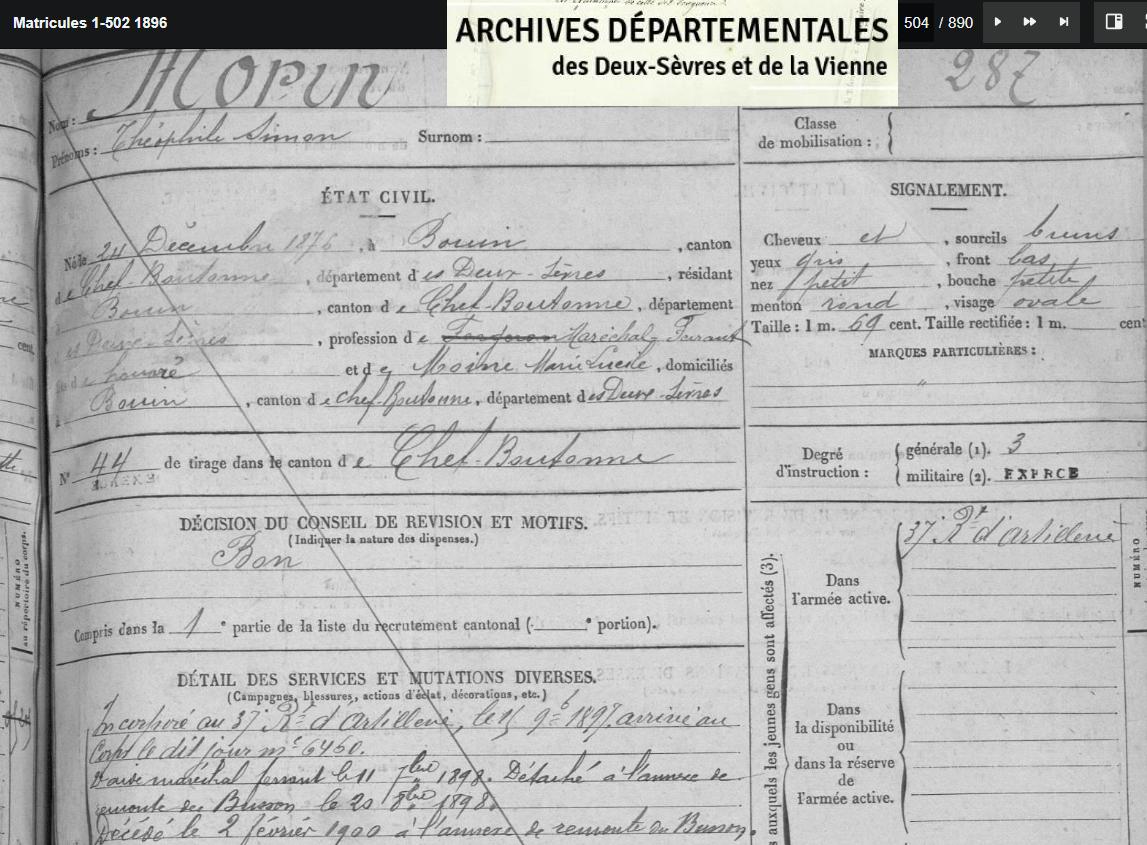 Matricules 1-502 1896
ARCHIVES DÉPARTEMENTALES
des Deux-Sèvres et de la Vienne
504 / 890
Nom : Morin
287
Prénoms : Théophile Simon Surnom :
Classe
de mobilisation :
ÉTAT CIVIL.
Né le 24 Décembre 1876, à Bouin, canton
de Chef-Boutonne, département des Deux-Sèvres, résidant
à Bouin, canton de Chef-Boutonne, département
des Deux-Sèvres, profession de Forgeron Maréchal-Ferrant
fils de honoré et de Moine Marie Lucile, domiciliés
à Bouin, canton de Chef-Boutonne, département des Deux-Sèvres
N° 44 de tirage dans le canton de Chef-Boutonne
SIGNALEMENT.
Cheveux et, sourcils bruns
yeux gris, front bas
nez petit, bouche petite
menton rond, visage ovale
Taille : 1 m. 69 cent. Taille rectifiée : 1 m. cent
MARQUES PARTICULIÈRES :
"
Degré
d'instruction :
générale (1). 3
militaire (2). EXERCÉ
DÉCISION DU CONSEIL DE REVISION ET MOTIFS.
(Indiquer la nature des dispenses.)
Bon
Compris dans la 1e partie de la liste du recrutement cantonal ( e portion).
DÉTAIL DES SERVICES ET MUTATIONS DIVERSES.
(Campagnes, blessures, actions d'éclat, décorations, etc.)
Incorporé au 37e Rt d'artillerie, le 15 9bre 1897, arrivé au
Corps le dit jour nº 6450.
maréchal ferrant le 11 7bre 1898. Détaché à l'annexe de
remonte du Busson le 20 8bre 1898.
Décédé le 2 février 1900 à l'annexe de remonte du Busson.
auxquels les jeunes gens sont affectés (3).
Dans
l'armée active.
37e Rt d'artillerie
Dans
la disponibilité
ou
dans la réserve
de
l'armée active.
NUMÉRO
NUMÉRO
au répertoire du corps.
cent.